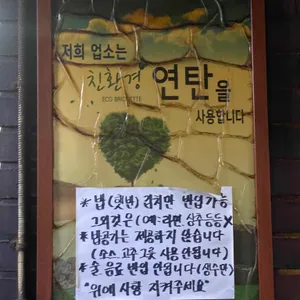 저희 업소는
친환경 연탄을
ECO BRIQUETTE
사용합니다
*밥(햇반) 김치만 반입 가능
그외것은 (예:라면 상추등등 X
*밥공기는 제공하지 않습니다
(소스 고추 그릇 사용 안됩니다)
*술 음료 반입 안됩니다 (생수만)
"위에 사항 지켜주세요"